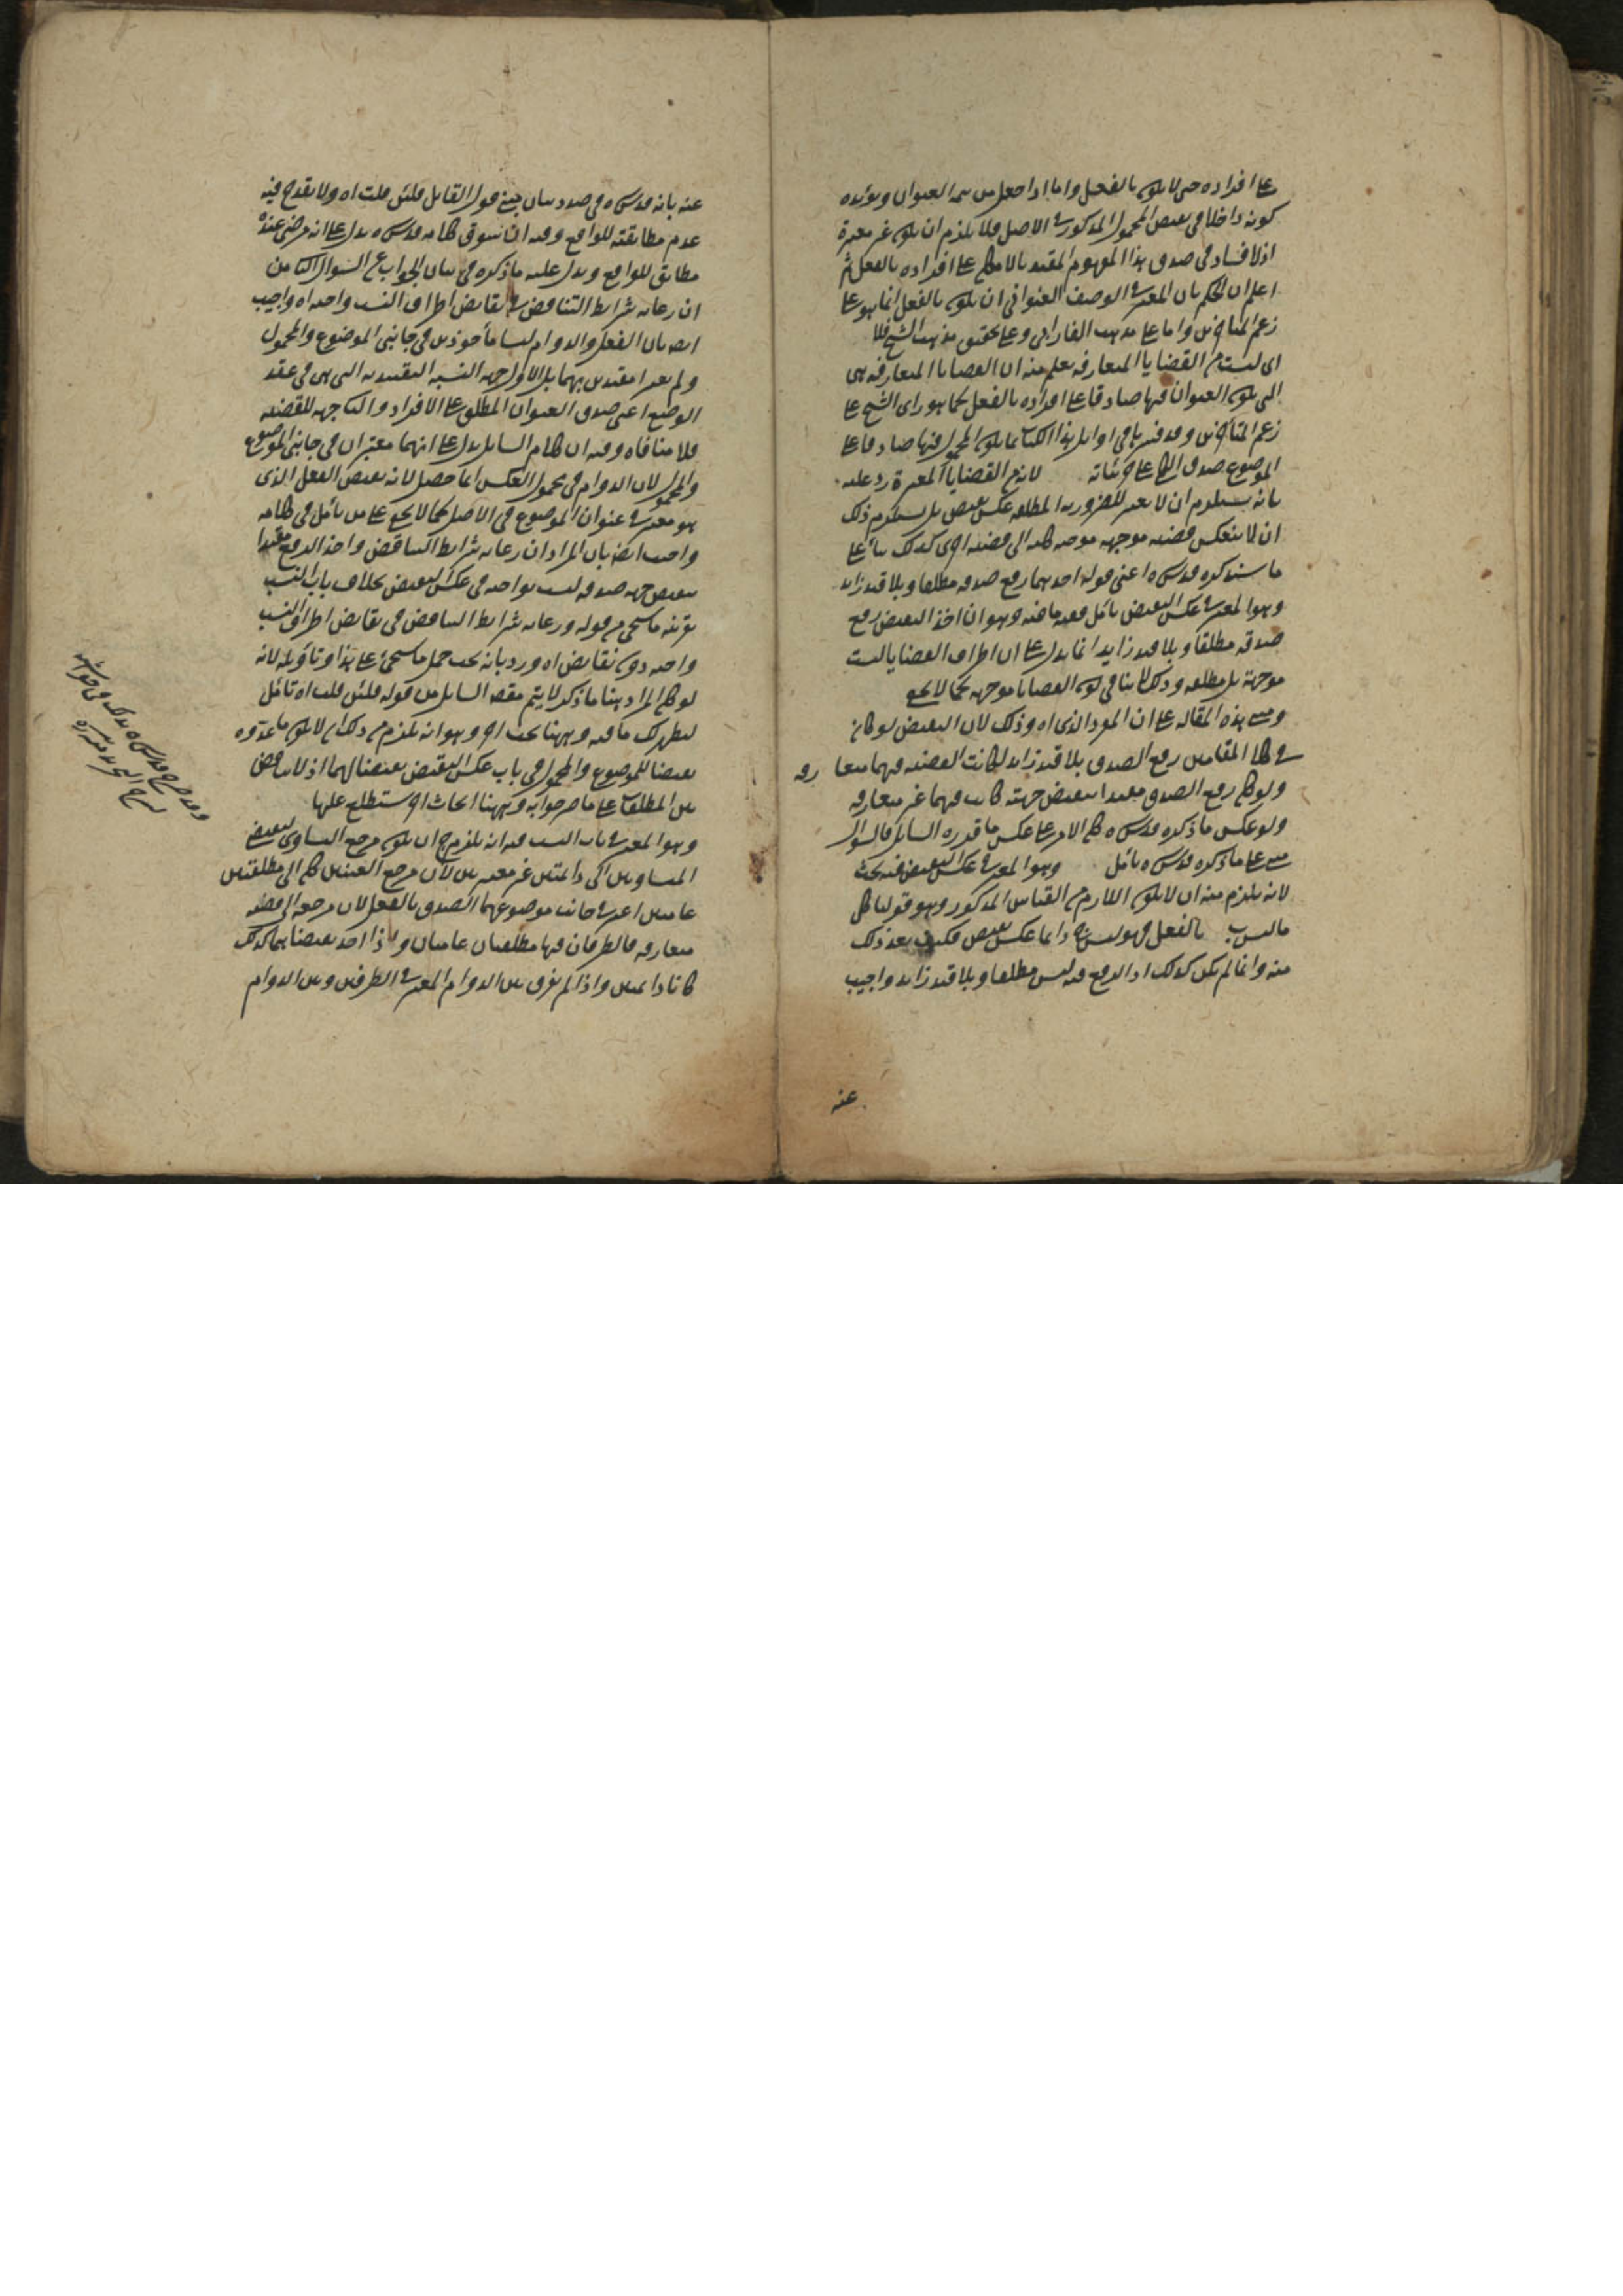 على افراده حتى لا يكون بالفعل واما اذا جعل من تتمة العنوان ويؤيده
كونه داخلا في نقيض المحمول المذكور في الاصل فلا يلزم ان يكون غير معتبرة
اذ لا فساد في صدق هذا المفهوم المقيد بالامكان على افراده بالفعل ثم
اعلم ان الحكم بان المعتبر في الوصف العنواني ان يكون بالفعل انما هو على
زعم المتاخرين واما على مذهب الفارابي وعلى تحقيق مذهب الشيخ فلا
اي ليست من القضايا المتعارفة يعلم منه ان القضايا المتعارفة هي
التي يكون العنوان فيها صادقا على افراده بالفعل كما هو راي الشيخ على
زعم المتاخرين وقد فسرها في اوايل هذا الكتاب بما يكون المحمول فيها صادقا على
الموضوع صدق الكلي على جزئياته لانه من القضايا المعتبرة رد عليه
بانه يستلزم ان لا يعتبر للضرورية المطلقة عكس نقيض بل يستلزم ذلك
ان لا ينعكس قضية موجهة موجبة كلية الى قضية اخرى كذلك بناء على
ما سيذكره قدس سره اعني قوله احدهما رفع صدقه مطلقا وبلا قيد زايد
وهو المعتبر في عكس النقيض تأمل ففيه ما فيه وهو ان اخذ النقيض رفع
صدقه مطلقا وبلا قيد زايد انما يدل على ان اطراف القضايا ليست
موجهة بل مطلقة وذلك لا ينافي كون القضايا موجهة كما لا يخفى
ومبنى هذه المقالة على ان المورد الذي اه وذلك لان النقيض لو كان
في كلا المقامين رفع الصدق بلا قيد زايد لكانت القضية فيهما متعارفة
ولو كان رفع الصدق مقيدا بنقيض جهته كانت فيهما غير متعارفة
ولو عكس ما ذكره قدس سره كان الامر على عكس ما قدره السايل فالسؤال
مبنى على ما ذكره قدس سره تأمل وهو المعتبر في عكس النقيض فيه بحث
لانه يلزم منه ان لا يكون اللازم من القياس المذكور وهو قولنا كل
ما ليس ب بالفعل فهو ليس ج دايما عكس نقيض فكيف يعد ذلك
منه وانما لم يكن كذلك اذ الرفع فيه ليس مطلقا وبلا قيد زايد واجيب
عنه
عنه بانه قدس سره في صدد بيان مبنى قول القايل فلئن قلت اه ولا يقدح فيه
عدم مطابقته للواقع وفيه ان سوق كلامه قدس سره يدل على انه مرضي عنده
مطابق للواقع ويدل عليه ما ذكره في بيان الجواب عن السؤال الثامن
ان رعاية شرايط التناقض في نقايض اطراف النسب واجبة اه واجيب
ايضا بان الفعل والدوام ليسا مأخوذين في جانبي الموضوع والمحمول
ولم يعتبرا مقيدين بهما بل الاول جهة النسبة التقييدية التي هي في عقد
الوضع اعني صدق العنوان المطلق على الافراد والثاني جهة للقضية
فلا منافاة وفيه ان كلام السايل يدل على انهما معتبران في جانبي الموضوع
والمحمول لان الدوام في محمول العكس انما حصل لانه نقيض الفعل الذي
هو معتبر في عنوان الموضوع في الاصل كما لا يخفى على من تأمل في كلامه
واجيب ايضا بان المراد ان رعاية شرايط التناقض واخذ الرفع مقيدا
بنقيض جهة صدقه ليست بواجبة في عكس النقيض بخلاف باب النسب
بقرينة ما سيجئ من قوله ورعاية شرايط التناقض في نقايض اطراف النسب
واجبة دون نقايض اه ورد بانه يجب حمل ما سيجئ على هذا وتأويله لانه
لو كان المراد هنا ما ذكر لا يتم مقصد السايل من قوله فلئن قلت اه تأمل
ليظهر لك ما فيه وههنا بحث اخر وهو انه يلزم من ذلك ان لا يكون ما عدوه
نقيضا للموضوع والمحمول في باب عكس النقيض نقيضا لهما اذ لا تناقض
بين المطلقات على ما مر جوابه وههنا ابحاث اخر ستطلع عليها
وهو المعتبر في باب النسب فيه انه يلزم ح ان يكون مرجع التساوي لنقيضي
المتساويين الى دايمتين غير معتبرتين لان مرجع العينين كان الى مطلقتين
عامتين اعتبر في جانب موضوعهما الصدق بالفعل لان مرجعه الى قضية
متعارفة فالطرفان فيها مطلقتان عامتان واذا اخذ نقيضاهما كذلك
كانا دايمتين واذا لم يفرق بين الدوام المعتبر في الطرفين وبين الدوام
وقد صرح قدس سره بذلك في حواشيه